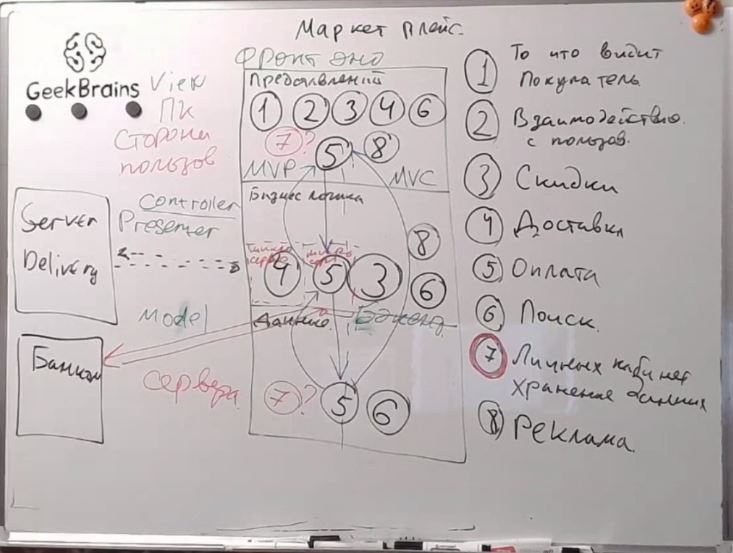 Маркет плейс.
GeekBrains
View
ПК
Сторона
пользов
Фронт энд
Представлений
1 2 3 4 6
7? 5 8
MVP MVC
Controller
Presenter
Бизнес логика
Server
Delivery
8
4 5 3
6
Model
Данные Бэкенд
Банки
Сервера
7? 5 6
1 То что видит
Покупатель
2 Взаимодействие
с пользов.
3 Скидки
4 Доставка
5 Оплата
6 Поиск.
7 Личных кабинет
Хранение данных
8 Реклама.